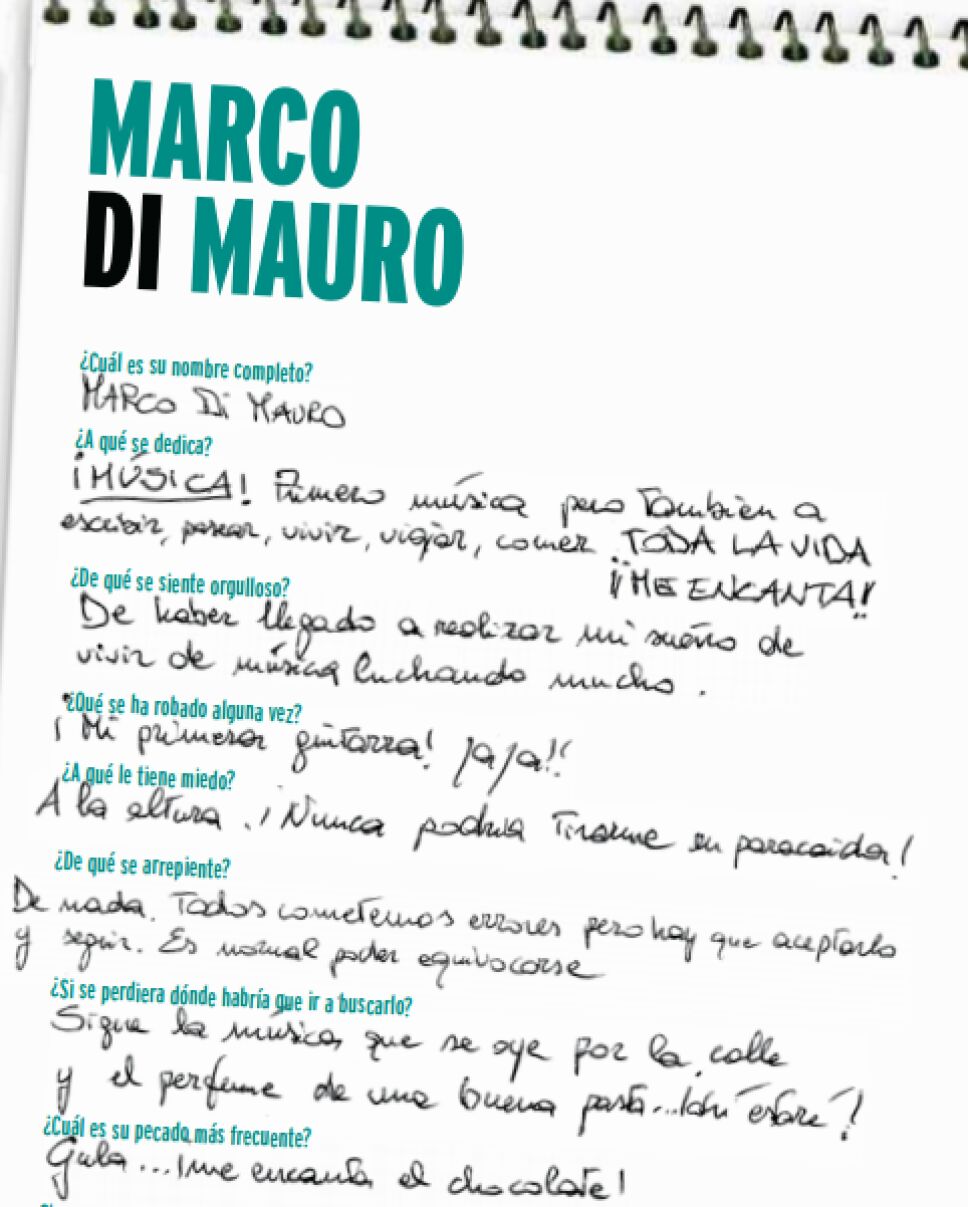 MARCO
DI MAURO
¿Cuál es su nombre completo?
MARCO Di MAURO
¿A qué se dedica?
¡MÚSICA! Primero música pero También a
escribir, pasear, vivir, viajar, comer TODA LA VIDA
¡¡ME ENCANTA!!
¿De qué se siente orgulloso?
De haber llegado a realizar mi sueño de
vivir de música luchando mucho.
¿Qué se ha robado alguna vez?
¡Mi primera guitarra! jaja!!
¿A qué le tiene miedo?
A la altura. ¡Nunca podria Tirarme en paracaidas!
¿De qué se arrepiente?
De nada. Todos cometemos errores pero hay que aceptarlo
y seguir. Es normal poder equivocarse
¿Si se perdiera dónde habría que ir a buscarlo?
Sigue la música, que se oye por la calle
y el perfume de una buena pasta...¡ahí estaré!
¿Cuál es su pecado más frecuente?
Gula...¡me encanta el chocolate!